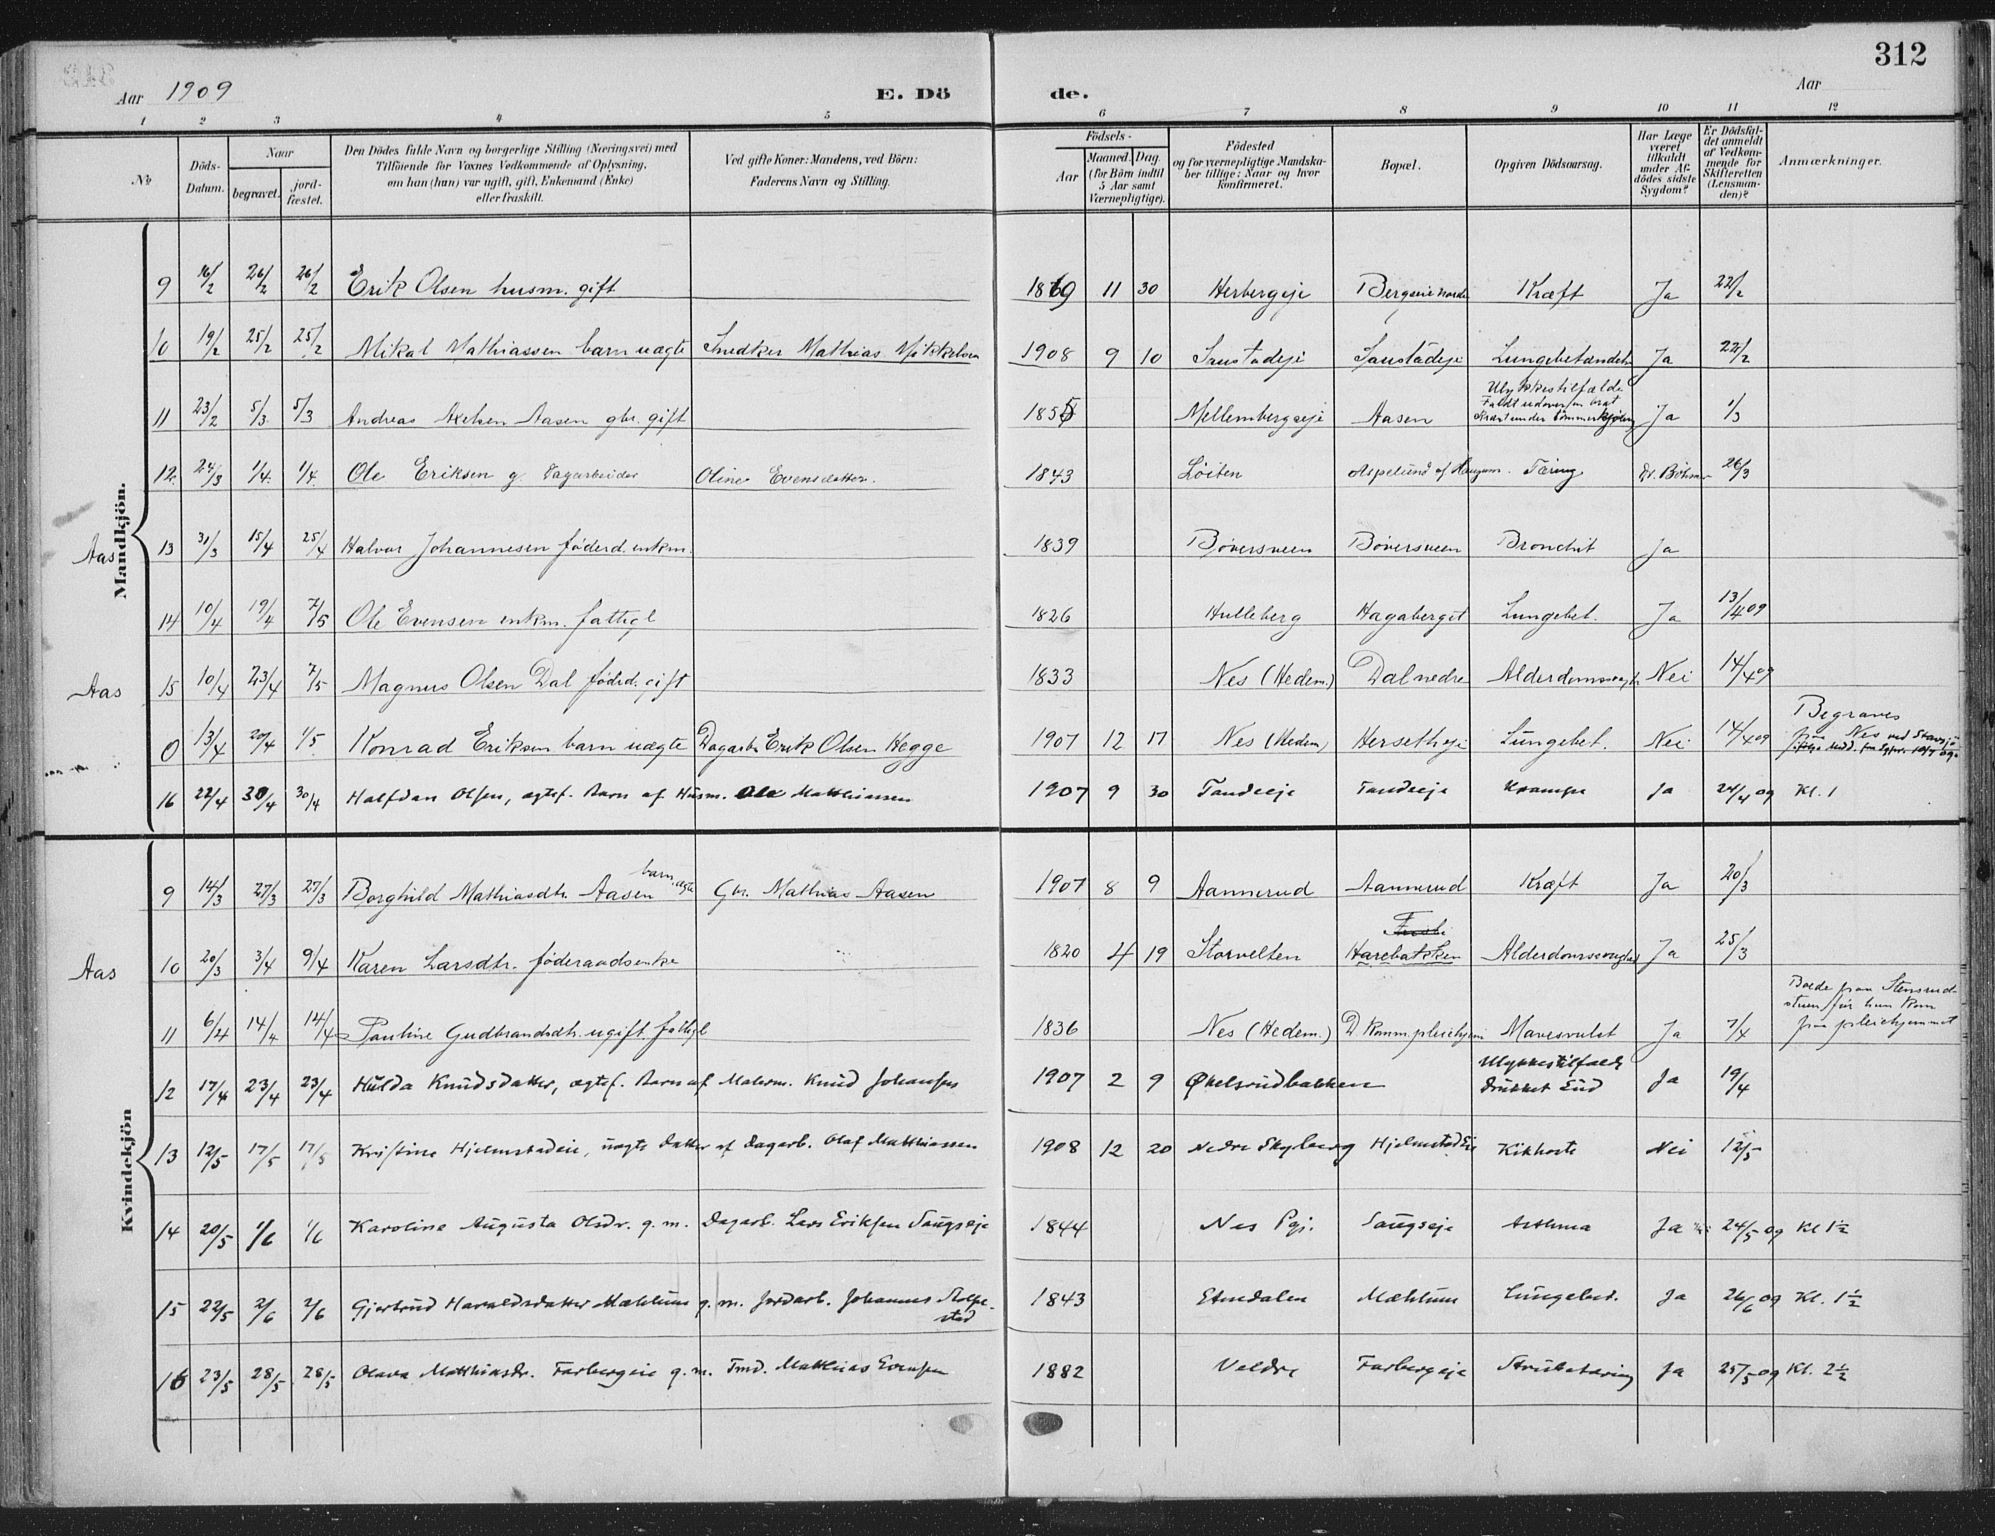 312
Aar 1909 E. Dö de. Aar
1 2 3 4 5 6 7 8 9 10 11 12
No
Döds-Datum.
Naar
begravet.
jord-fæstet.
Den Dödes fulde Navn og borgerlige Stilling (Næringsvei) med
Tilföiende for Voxnes Vedkommende af Oplysning,
om han (hun) var ugift, gift, Enkemand (Enke)
eller fraskilt.
Ved gifte Koner: Mandens, ved Börn:
Faderens Navn og Stilling.
Födsels-
Aar
Maaned. Dag.
(for Börn indtil
5 Aar samt
Værnepligtige).
Födested
og for værnepligtige Mandska-
ber tillige: Naar og hvor
konfirmeret.
Bopæl.
Opgiven Dödsaarsag.
Har Læge
været
tilkaldt
under Af-
dödes sidste
Sygdom?
Er Dödsfal-
det anmeldt
af Vedkom-
mende for
Skifteretten
(Lensman-
den)?
Anmærkninger.
Mandkjön.
9 16/2 26/2 26/2 Erik Olsen husm. gift 1869 11 30 Herbergeje Bergseie nordre Kræft Ja 22/2
10 19/2 25/2 25/2 Mikal Mathiassen barn uægte Snedker Mathias 1908 9 10 Saustadeje Saustadeje Lungebetændelse Ja 22/2
11 23/2 5/3 5/3 Andreas Axelsen Aasen gbr. gift 1855 Mellembergseje Aasen Ulykkestilfælde
Faldt udover en brat
Skrænt under tømmerkjøring Ja 1/3
12 24/3 1/4 1/4 Ole Eriksen g. Dagarbeider Oline Evensdatter. 1843 Löiten Aspelund af Haugum. Tæring Dr. Böhmer 26/3
Aas 13 31/3 15/4 25/4 Halvor Johannesen föderd. enkm. 1839 Böversveen Böversveen Bronchit Ja
14 10/4 19/4 7/5 Ole Evensen enkm. fattigl 1826 Hulleberg Hagaberget Lungebet. Ja 13/4 09
Aas 15 10/4 23/4 7/5 Magnus Olsen Dal föderd. gift 1833 Nes (Hedem.) Dal nedre Alderdomssvaghed Nei 14/4 09
0 13/4 20/4 1/5 Konrad Eriksen barn uægte Dagarb. Erik Olsen Hegge 1907 12 17 Nes (Hedem) Hersetheje Lungebet. Nei 14/4 09 Begraves
fra Nes ved Stavsjø
16 22/4 30/4 30/4 Halfdan Olsen, ægtef. Barn af Husm. Ole Matthiassen 1907 9 30 Tandeeje Tandeeje Krampe Ja 24/4 09 Kl. 1
Kvindekjön
9 14/3 27/3 27/3 Borghild Mathiasdtr. Aasen barn ægte Gbr. Mathias Aasen 1907 8 9 Aannerud Aannerud Kræft Ja 20/3
Aas 10 20/3 3/4 9/4 Karen Larsdtr. föderaadsenke 1820 4 19 Storvelten Harebakken Alderdomssvaghed Ja 25/3
11 6/4 14/4 14/4 Pauline Gudbrandsdtr. ugift fattigl 1836 Nes (Hedem.) D Komm. pleiehjem Mavesvulst Ja 7/4 Boede paa Stensrud-
stuen för hun kom
paa pleiehjemmet
12 17/4 23/4 23/4 Hulda Knudsdatter, ægtef. Barn af Malerm. Knud Johansen 1907 2 9 Økelsrudbakken Ulykkestilfælde
drukket Lud Ja 19/4
13 12/5 17/5 17/5 Kristine Hjelmstadeie, uægte Datter af Dagarb. Olaf Matthiassen 1908 12 20 Nedre Skyberg Hjelmstadeie Kikhoste Nei 12/5
14 20/5 1/6 1/6 Karoline Augusta Olsdr. g. m. Dagarb. Lars Eriksen Saugseje 1844 Nes Pgj. Saugseje Asthma Ja 24/5 09 Kl 1½
15 22/5 2/6 2/6 Gjertrud Haraldsdatter Mæhlum g. m. Jordarb. Johannes
1843 Etnedalen Mæhlum Lungebet. Ja 26/6 09 Kl. 1½
16 23/5 28/5 28/5 Olava Matthiasdr. Farbergeie g. m. Tmd. Matthias Evensen 1882 Veldre Farbergeje Strubetæring Ja 25/5 09 Kl. 2½